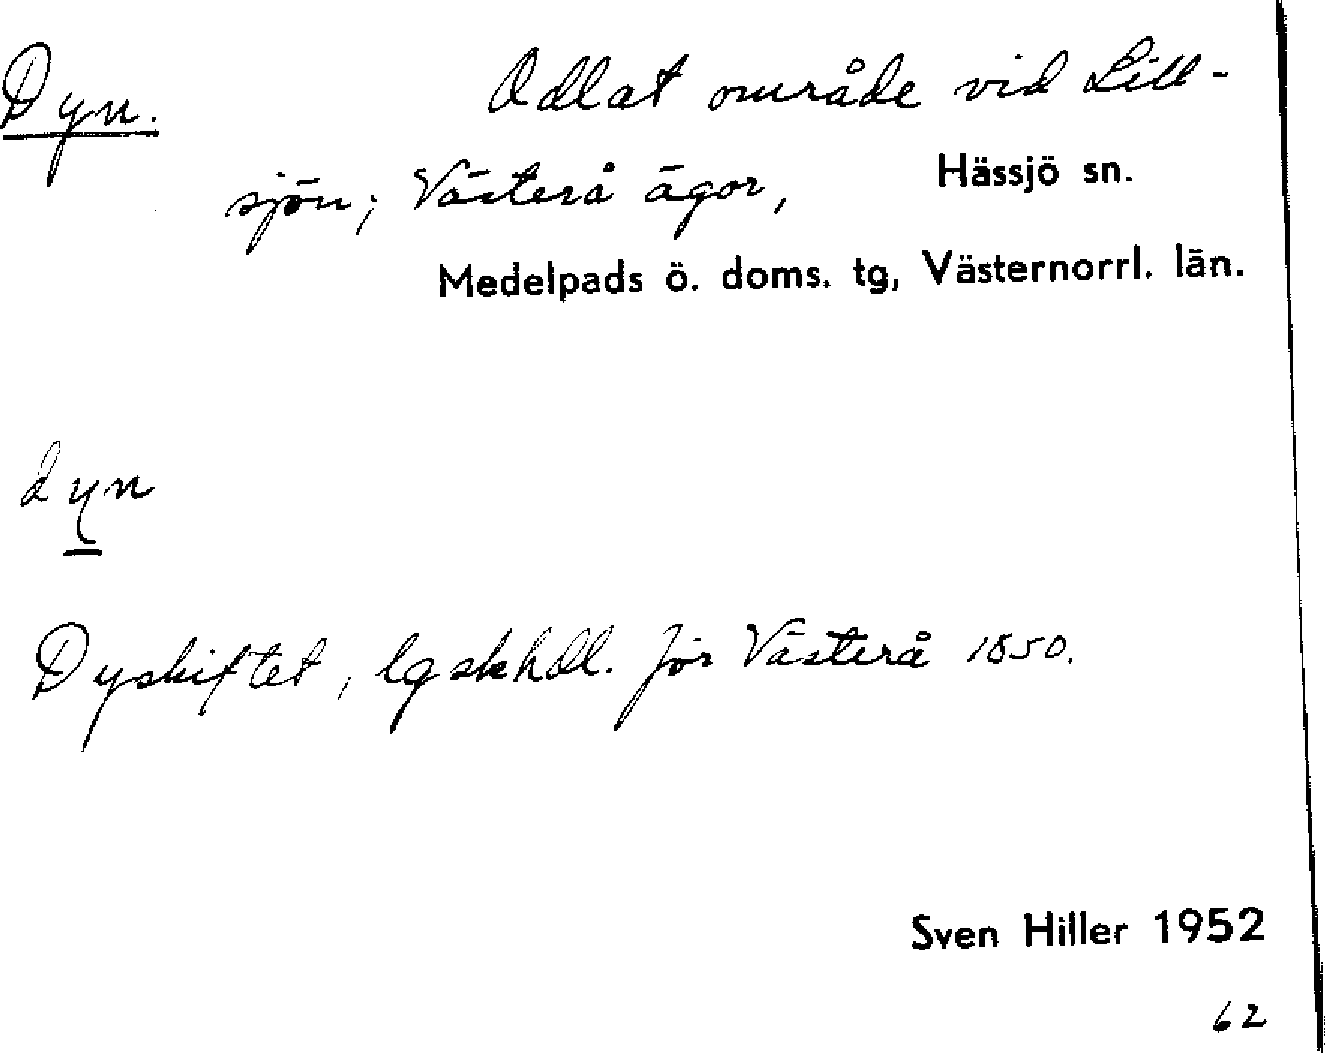 Dyn. Odlat område vid Lill-
sjön; Västerå ägor, Hässjö sn.
Medelpads ö. doms. tg, Västernorrl. län.
dyn
Dyskiftet, lgskhdl. för Västerå 1850.
Sven Hiller 1952
62